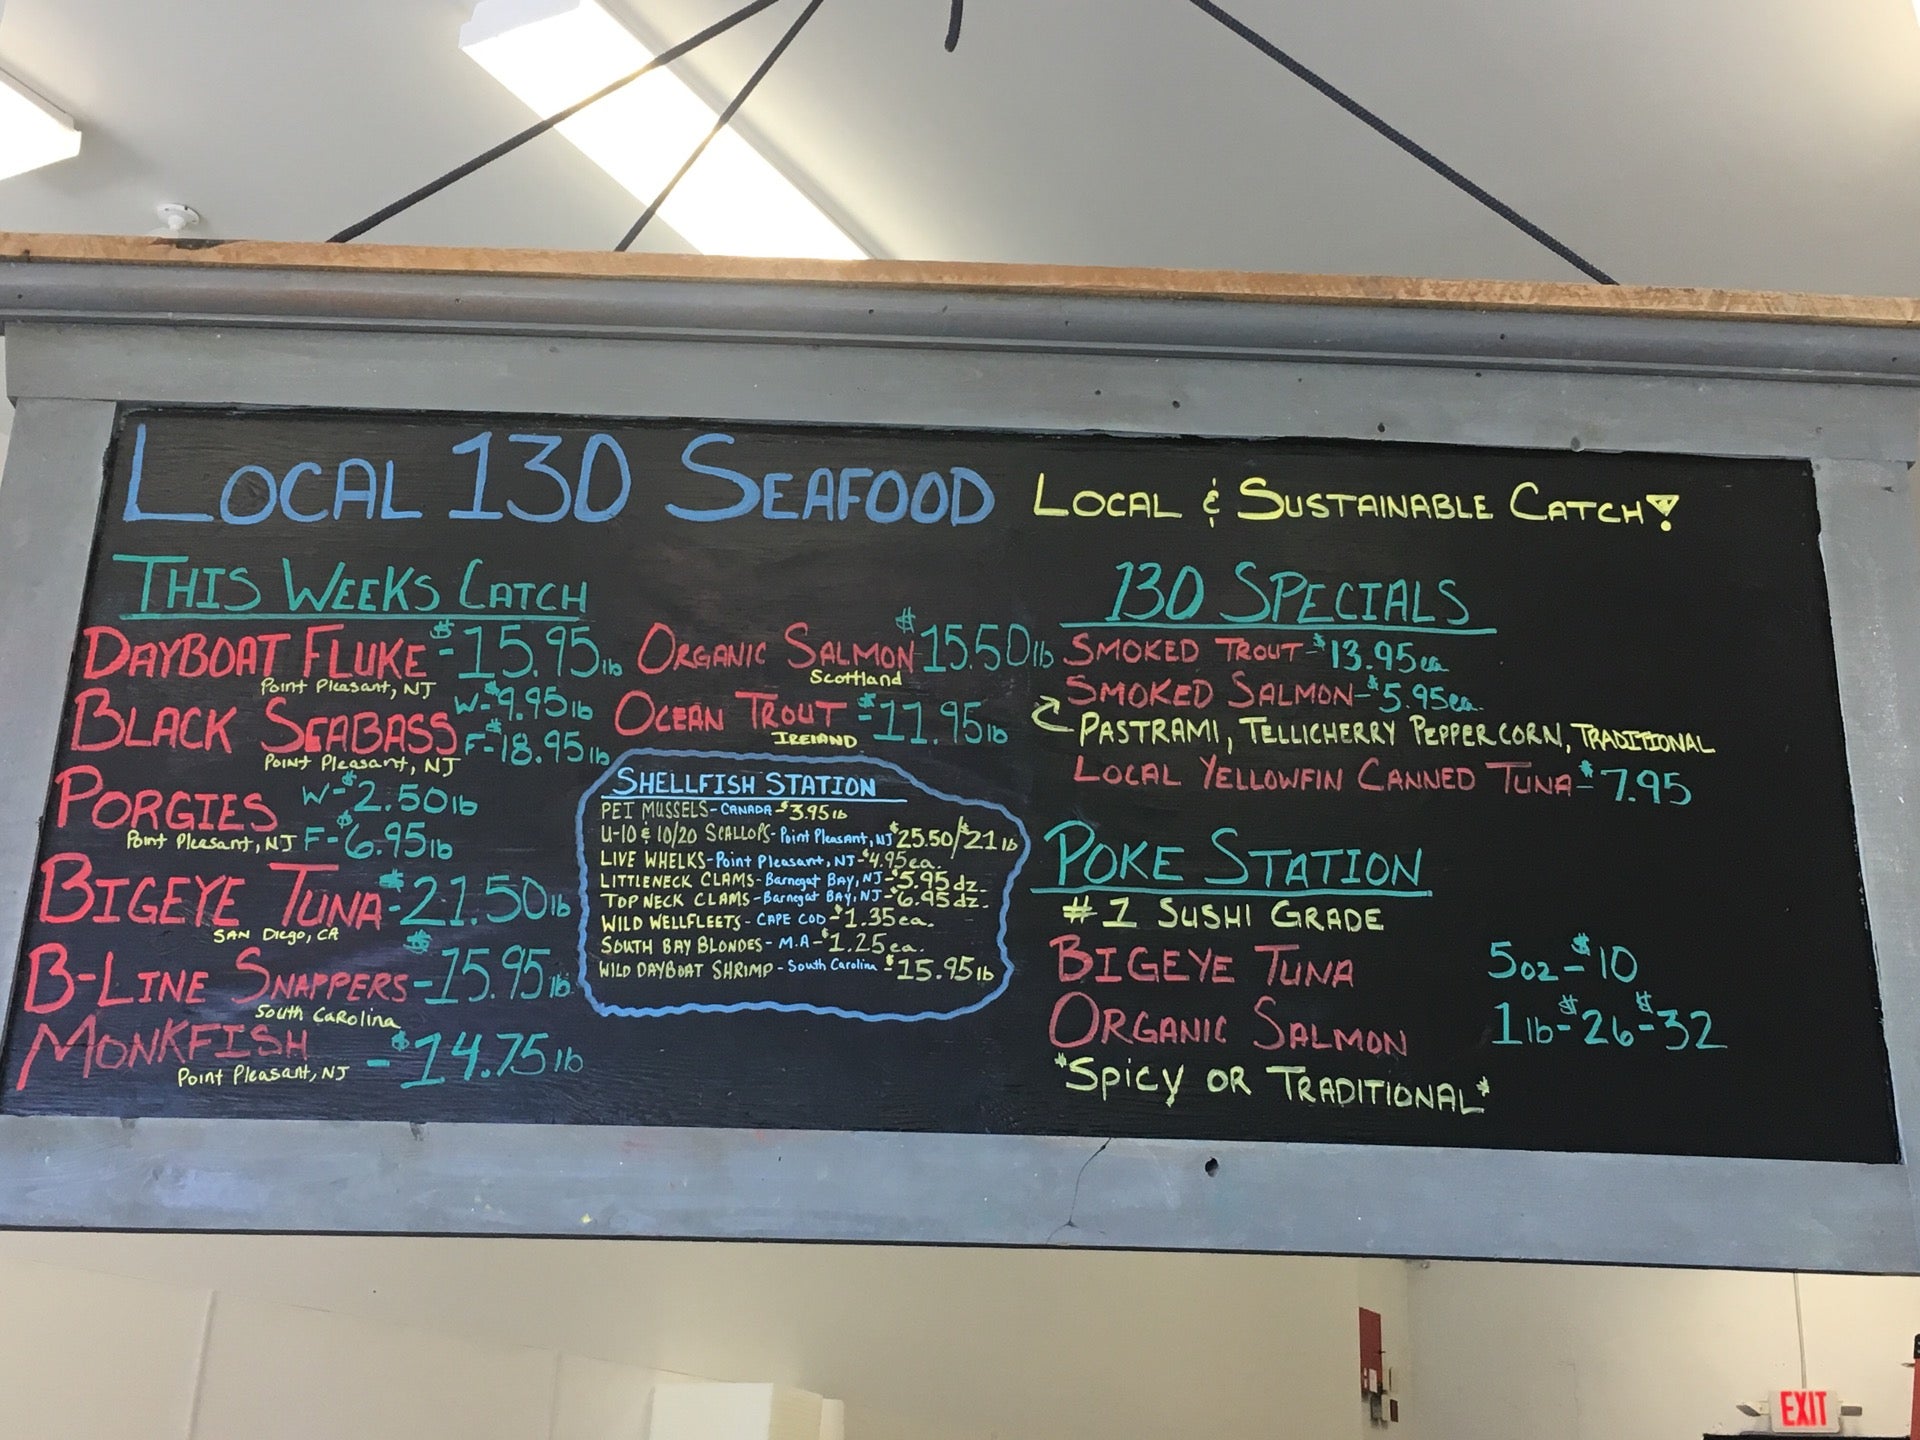 LOCAL 130 SEAFOOD
LOCAL & SUSTAINABLE CATCH!
THIS WEEKS CATCH
DAYBOAT FLUKE -$15.95 lb
Point Pleasant, NJ
BLACK SEABASS W-$9.95 lb
F-$18.95 lb
Point Pleasant, NJ
PORGIES W-$2.50 lb
Point Pleasant, NJ F-$6.95 lb
BIGEYE TUNA -$21.50 lb
SAN Diego, CA
B-LINE SNAPPERS -$15.95 lb
South Carolina
MONKFISH -$14.75 lb
Point Pleasant, NJ
ORGANIC SALMON $15.50 lb
Scotland
OCEAN TROUT -$11.95 lb
IRELAND
SHELLFISH STATION
PEI MUSSELS - CANADA -$3.95 lb
U-10 & 10/20 SCALLOPS - Point Pleasant, NJ $25.50/$21 lb
LIVE WHELKS - Point Pleasant, NJ -$4.95 ea.
LITTLENECK CLAMS - Barnegat BAY, NJ -$5.95 dz.
TOP NECK CLAMS - Barnegat BAY, NJ -$6.95 dz.
WILD WELLFLEETS - CAPE COD -$1.35 ea.
SOUTH BAY BLONDES - M.A -$1.25 ea.
WILD DAYBOAT SHRIMP - South Carolina -$15.95 lb
130 SPECIALS
SMOKED TROUT -$13.95 ea
SMOKED SALMON -$5.95 ea.
PASTRAMI, TELLICHERRY PEPPERCORN, TRADITIONAL
LOCAL YELLOWFIN CANNED TUNA -$7.95
POKE STATION
#1 SUSHI GRADE
BIGEYE TUNA 5oz -$10
ORGANIC SALMON 1 lb -$26 -$32
*SPICY OR TRADITIONAL*
EXIT